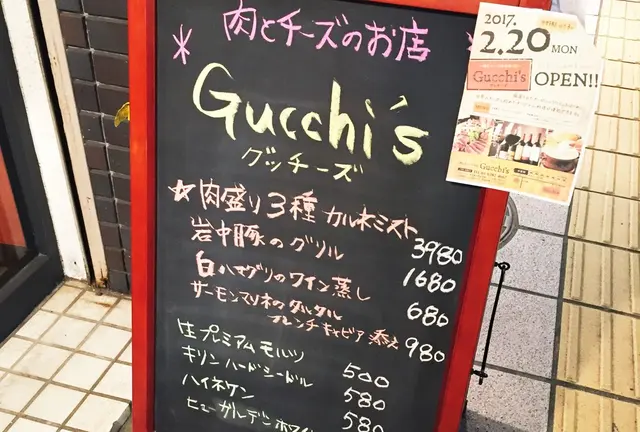 肉とチーズのお店
Gucchi's
グッチーズ
☆肉盛り3種 カルネミスト 3980
岩中豚のグリル 1680
白ハマグリのワイン蒸し 680
サーモンマリネのタルタル
フレンチキャビア 添え 980
生プレミアムモルツ 500
キリンハードシードル 580
ハイネケン 580
ヒューガルデンホワイ
2017.
2.20 MON
Gucchi's OPEN!!
グッチーズ
Gucchi's